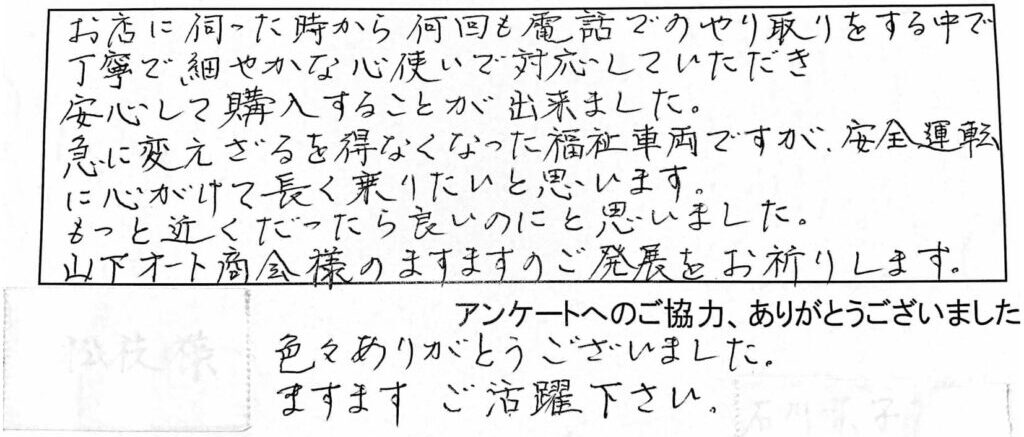 お店に伺った時から何回も電話でのやり取りをする中で
丁寧で細やかな心使いで対応していただき
安心して購入することが出来ました。
急に変えざるを得なくなった福祉車両ですが、安全運転
に心がけて長く乗りたいと思います。
もっと近くだったら良いのにと思いました。
山下オート商会様のますますのご発展をお祈りします。
アンケートへのご協力、ありがとうございました
色々ありがとうございました。
ますます ご活躍下さい。